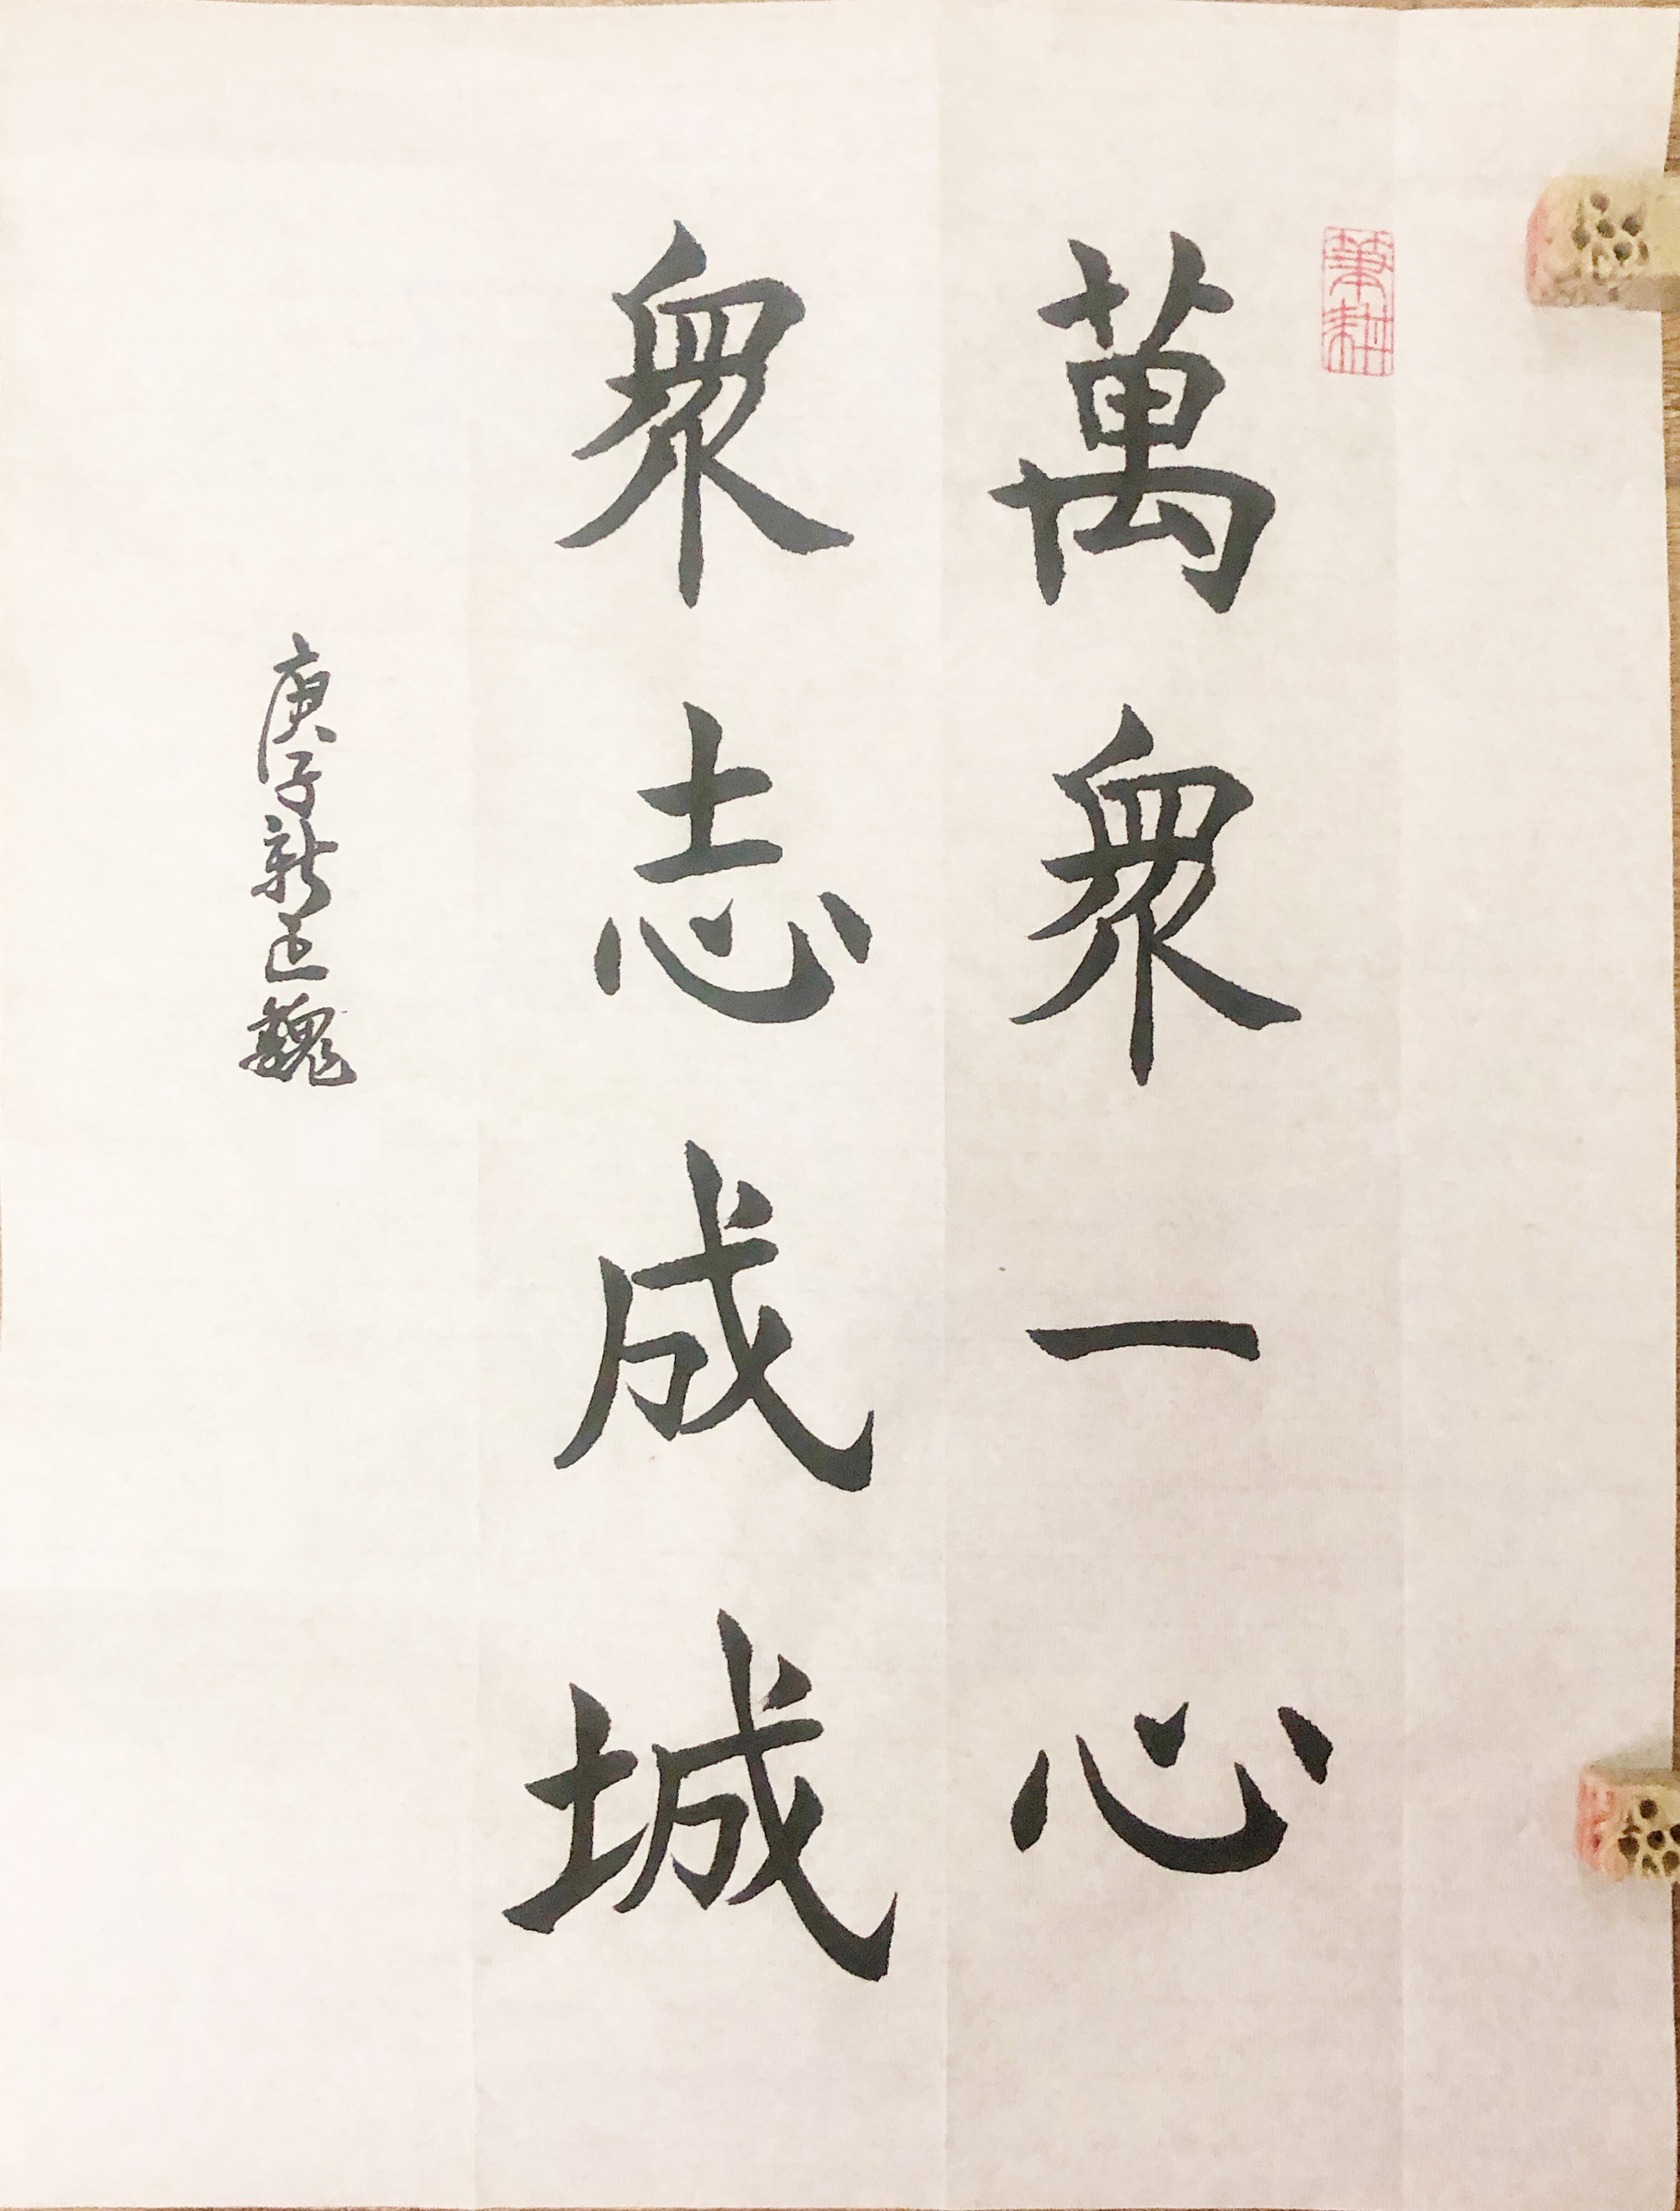 筆耕
萬眾一心
眾志成城
庚子新正魏